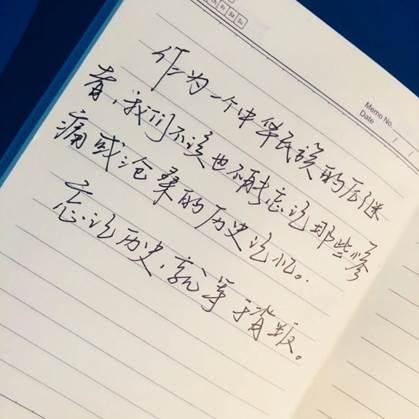 Memo No.
Date
作为一个中华民族的后继
者，我们不该也不能忘记那些惨
痛或沧桑的历史记忆。
忘记历史，就等于背叛。